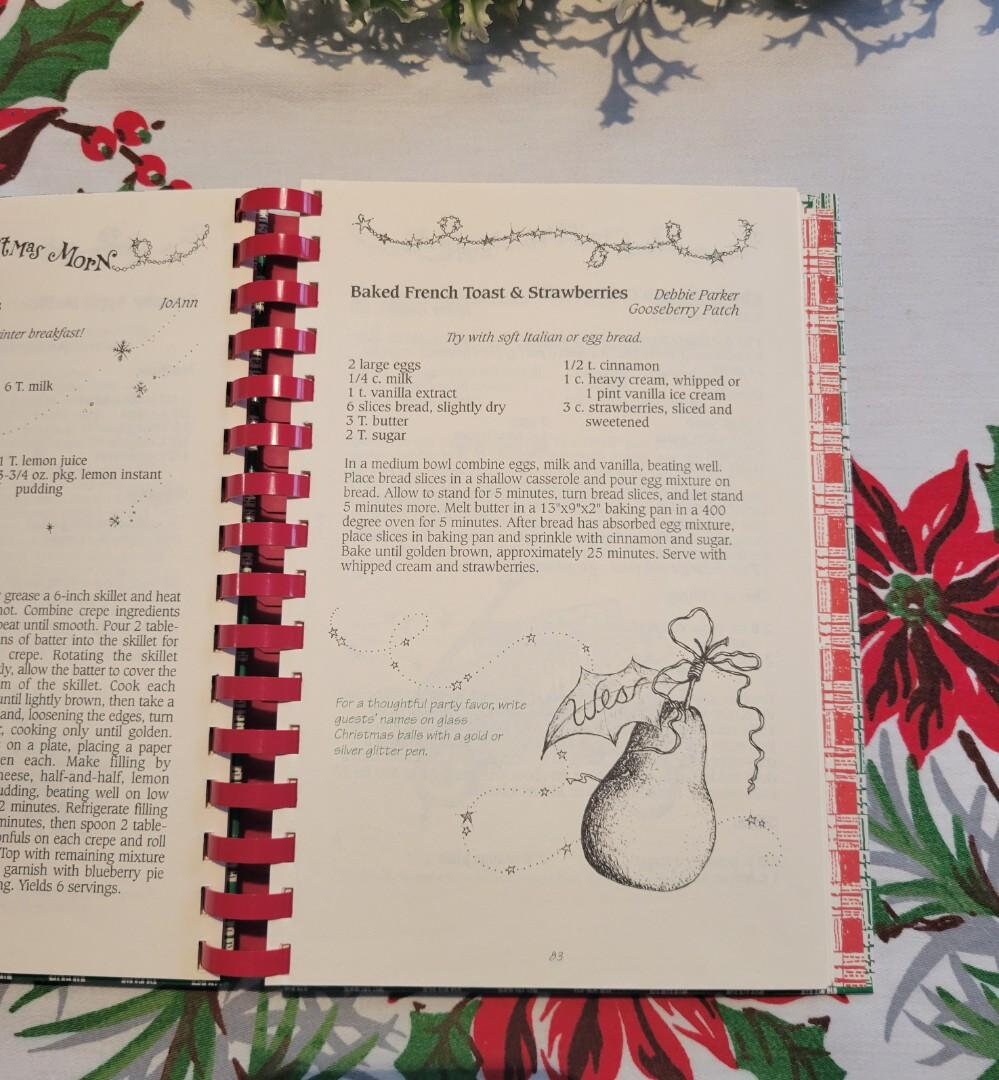 tmas Morn
JoAnn
inter breakfast!
6 T. milk
1 T. lemon juice
3-3/4 oz. pkg. lemon instant
pudding
grease a 6-inch skillet and heat
hot. Combine crepe ingredients
beat until smooth. Pour 2 table-
ns of batter into the skillet for
crepe. Rotating the skillet
ly, allow the batter to cover the
m of the skillet. Cook each
until lightly brown, then take a
and, loosening the edges, turn
, cooking only until golden.
on a plate, placing a paper
en each. Make filling by
heese, half-and-half, lemon
udding, beating well on low
2 minutes. Refrigerate filling
minutes, then spoon 2 table-
onfuls on each crepe and roll
Top with remaining mixture
garnish with blueberry pie
ng. Yields 6 servings.
Baked French Toast & Strawberries Debbie Parker
Gooseberry Patch
Try with soft Italian or egg bread.
2 large eggs
1/4 c. milk
1 t. vanilla extract
6 slices bread, slightly dry
3 T. butter
2 T. sugar
1/2 t. cinnamon
1 c. heavy cream, whipped or
1 pint vanilla ice cream
3 c. strawberries, sliced and
sweetened
In a medium bowl combine eggs, milk and vanilla, beating well.
Place bread slices in a shallow casserole and pour egg mixture on
bread. Allow to stand for 5 minutes, turn bread slices, and let stand
5 minutes more. Melt butter in a 13"x9"x2" baking pan in a 400
degree oven for 5 minutes. After bread has absorbed egg mixture,
place slices in baking pan and sprinkle with cinnamon and sugar.
Bake until golden brown, approximately 25 minutes. Serve with
whipped cream and strawberries.
Wes
For a thoughtful party favor, write
guests' names on glass
Christmas balls with a gold or
silver glitter pen.
83